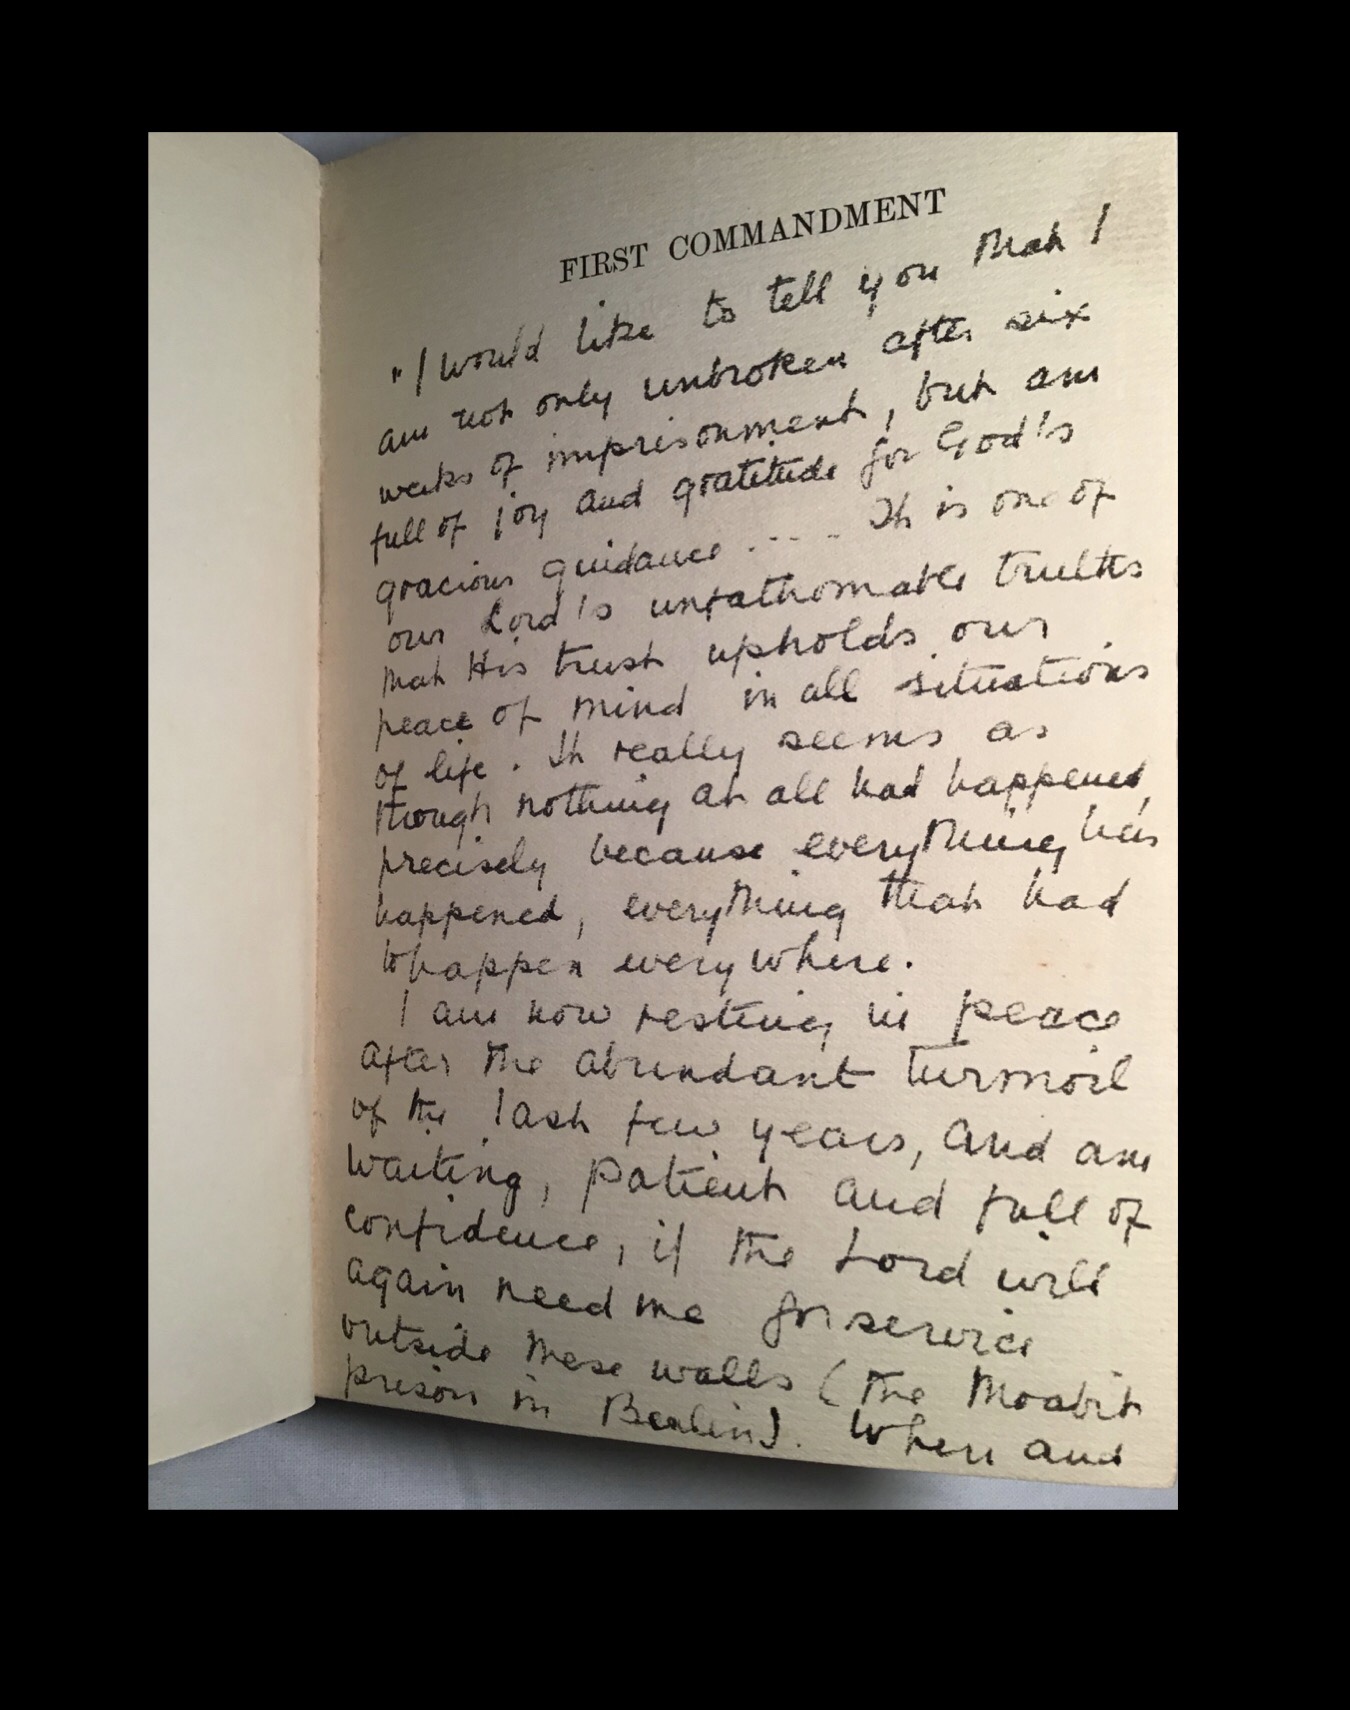 FIRST COMMANDMENT
"I would like to tell you that I
am not only unbroken after six
weeks of imprisonment, but am
full of joy and gratitude for God's
gracious guidance ..... It is one of
our Lord's unfathomable truths
that His trust upholds our
peace of mind in all situations
of life. It really seems as
though nothing at all had happened,
precisely because everything has
happened, everything that had
to happen everywhere.
I am now resting in peace
after the abundant turmoil
of the last few years, and am
waiting, patient and full of
confidence, if the Lord will
again need me for service
outside these walls (the Moabit
prison in Berlin). When and